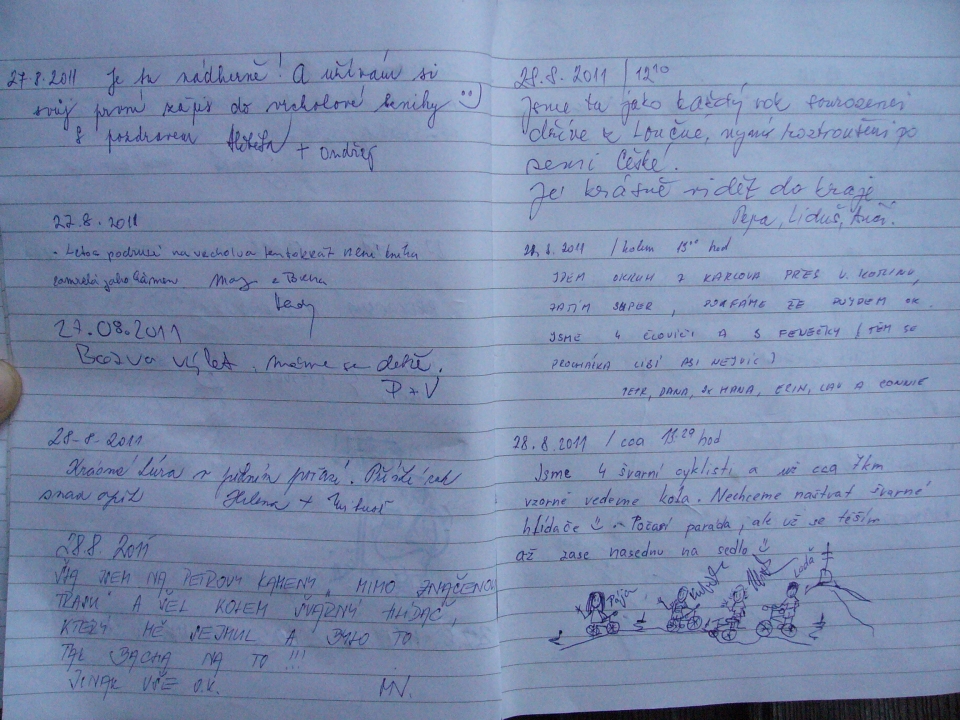 27.8.2011 Je tu nádherně! A užívám si
svůj první zápis do vrcholové knihy
S pozdravem + Ondřej
27.8.2011
Letos podruhé na vrcholu a tentokrát není kniha
jako
27.08.2011
výlet, máme se dobře.
P + V
28-8-2011
v pěkném počasí. Příští rok
snad opět Helena +
28.8. 2011
ŠLA JSEM NA PETROVY KAMENY, MIMO ZNAČENOU
TRASU A ŠEL KOLEM ŠVARNÝ HLÍDAČ,
KTERÝ MĚ SEJMUL A BYLO TO
TAK BACHA NA TO !!!
JINAK VŠE O.K. MV.
28.8. 2011 / 12¹⁰
Jsme tu jako každý rok sourozenci
dříve z Loučné, nyní roztroušeni po
zemi České.
Je krásně vidět do kraje
Pepa, Liduš,
28.8.2011 / kolem 13⁰⁰ hod
JDEM OKRUH Z KARLOVA PŘES V. KOTLINU,
ZATÍM SUPER, DOUFÁME ŽE DOJDEM OK.
JSME 4 ČLOVÍČCI A 3 PEJSEČKY (TĚM SE
PROCHÁZKA LÍBÍ ASI NEJVÍC)
PETR, DANA, HANA, ERIN, A CONNIE
28.8.2011 / cca 13:29 hod
Jsme 4 švarní cyklisti a už cca 7km
vzorně vedeme kola. Nechceme naštvat švarné
hlídače Počasí paráda, ale už se těším
až zase nasednu na sedlo
Láďa